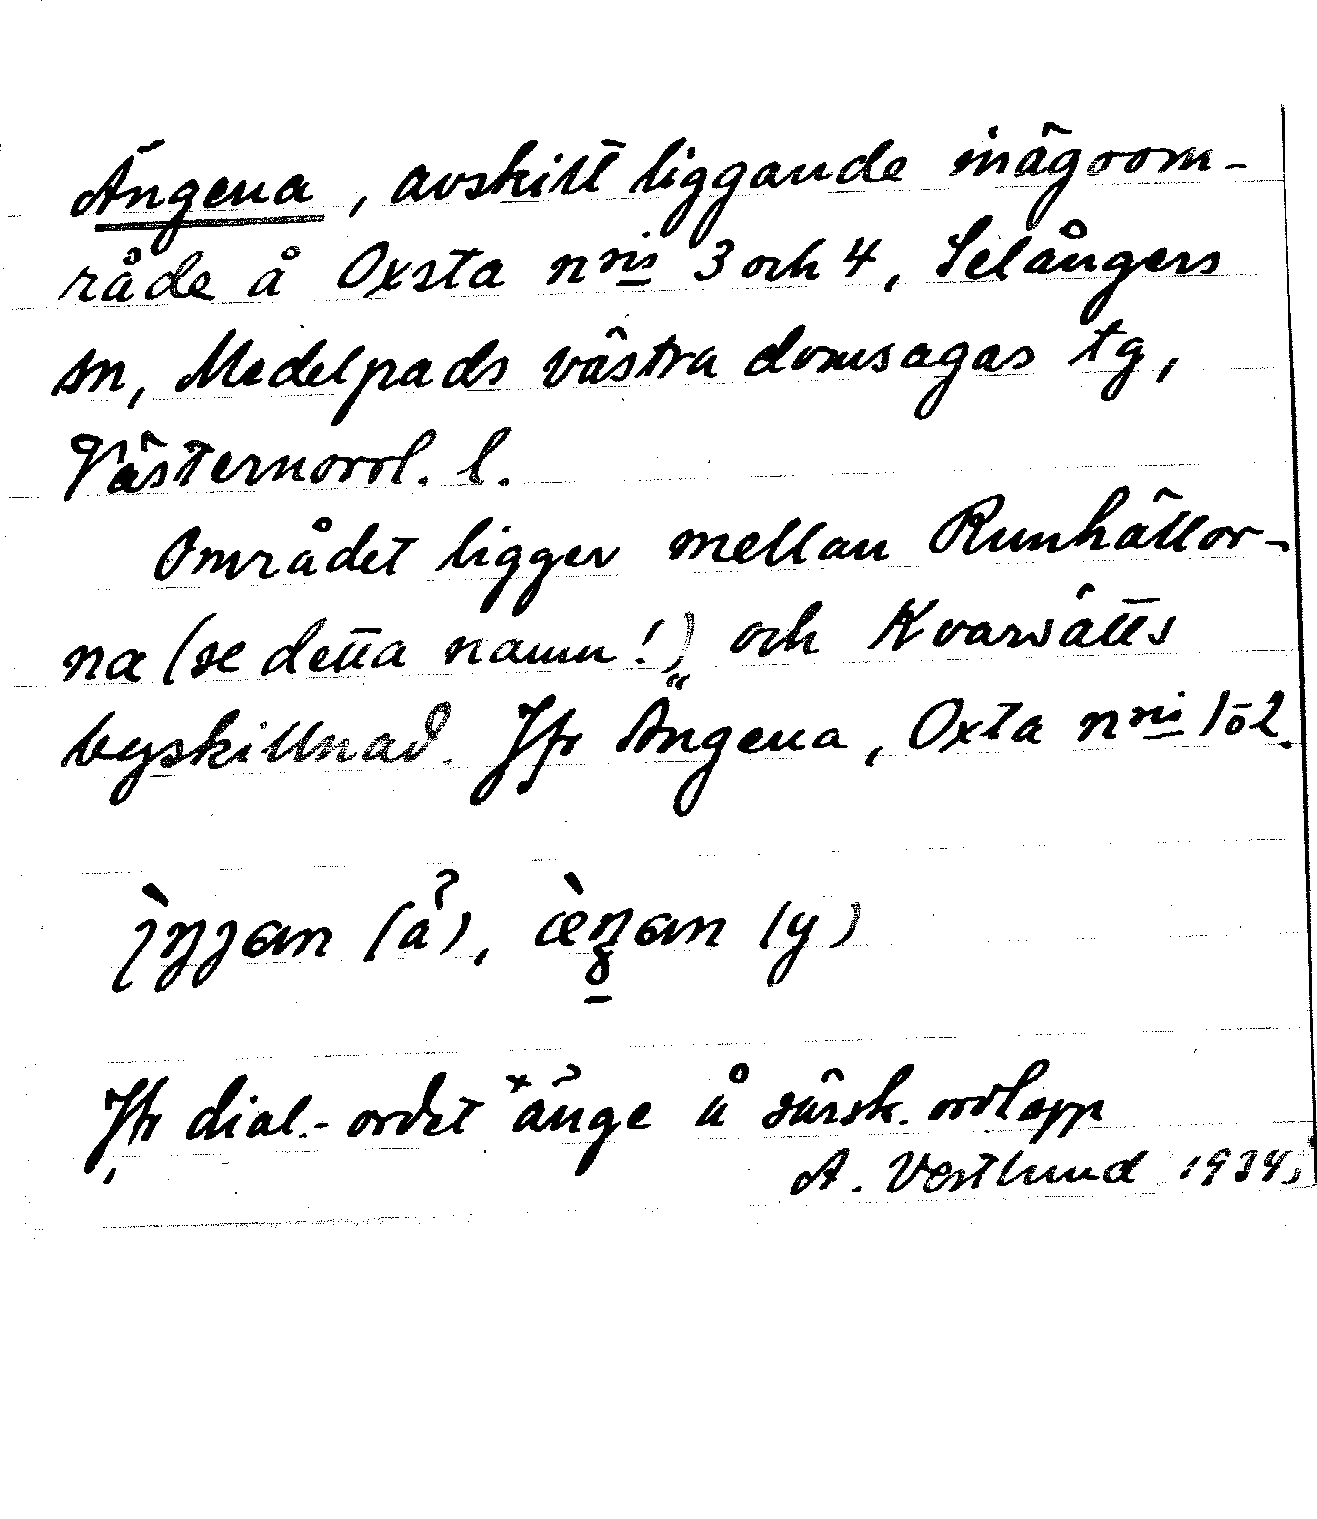 Ängena, avskilt liggande inägoom-
råde å Oxsta nris 3 och 4, Selångers
sn, Medelpads västra domsagas tg,
Västernorrl. l.
Området ligger mellan Runhällor-
na (se detta namn!), och Kvarsätts
byskillnad. Jfr Ängena, Oxta nris 1 o 2.
(å), (y)
Jfr dial.-ordet änge å särsk. ordlapp
A. Vestlund 1934,